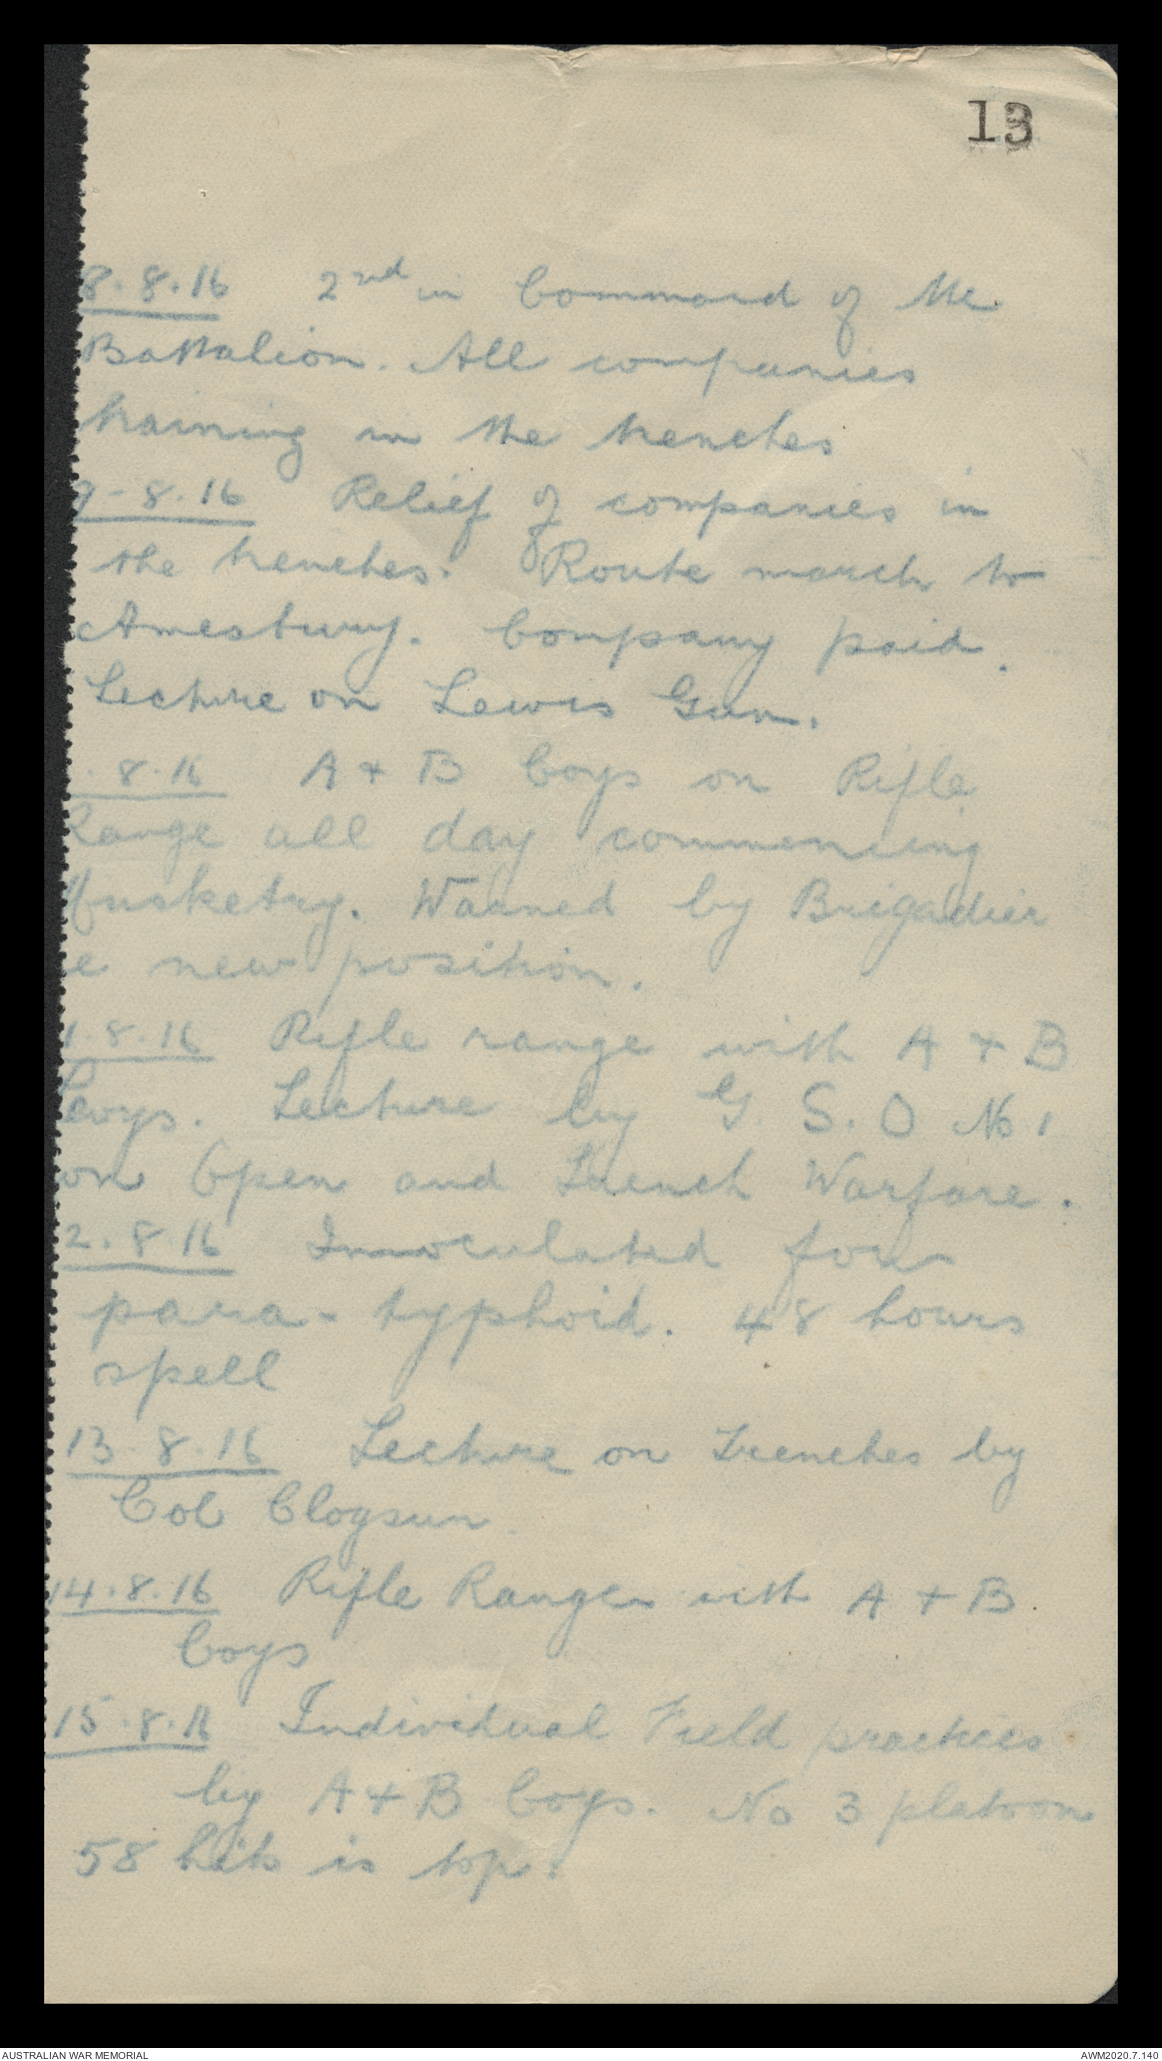 13
8.8.16 2nd in Command of the
Battalion. All companies
training in the trenches
9-8.16 Relief of companies in
the trenches. Route march to
Amesbury. Company paid.
Lecture on Lewis Gun.
. 8.16 A + B Coys on Rifle
Range all day commencing
Musketry. Warned by Brigadier
e new position.
1.8.16 Rifle range with A + B
Coys. Lecture by G. S. O No 1
on Open and Trench Warfare.
2.8.16 Innoculated for
para-typhoid. 48 hours
spell
13.8.16 Lecture on Trenches by
Col
14.8.16 Rifle Range with A + B
Coys
15.8.16 Individual Field practices
by A + B Coys. No 3 platoon
58 hits is top.
AUSTRALIAN WAR MEMORIAL
AWM2020.7.140